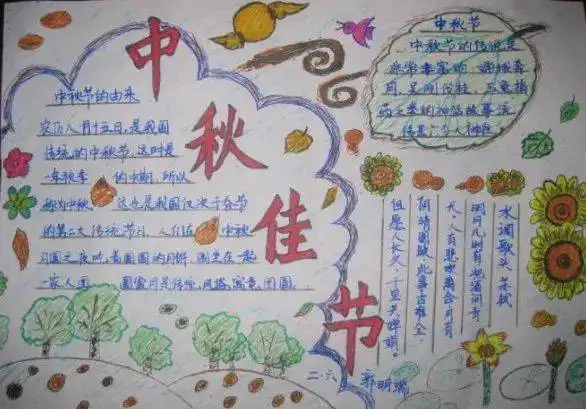 中秋佳节
中秋节的由来
农历八月十五日,是我国
传统的中秋节,这时是
一年秋季 的中期,所以
称为中秋 这也是我国仅次于春节
的第二大传统节日,人们在 中秋
月圆之夜吃着圆圆的月饼 围坐在一起
一家人团 圆赏月是传统,风格,寓意,团圆.
中秋节
中秋节的传说是
非常丰富的,嫦娥奔
月,吴刚伐桂,玉兔捣
药之类的神话故事流
传甚广
水调歌头 苏轼
明月几时有,把酒问青
天,人有悲欢离合,月有
阴晴圆缺,此事古难全,
但愿人长久,千里共婵娟。
二.六 郭明瑞